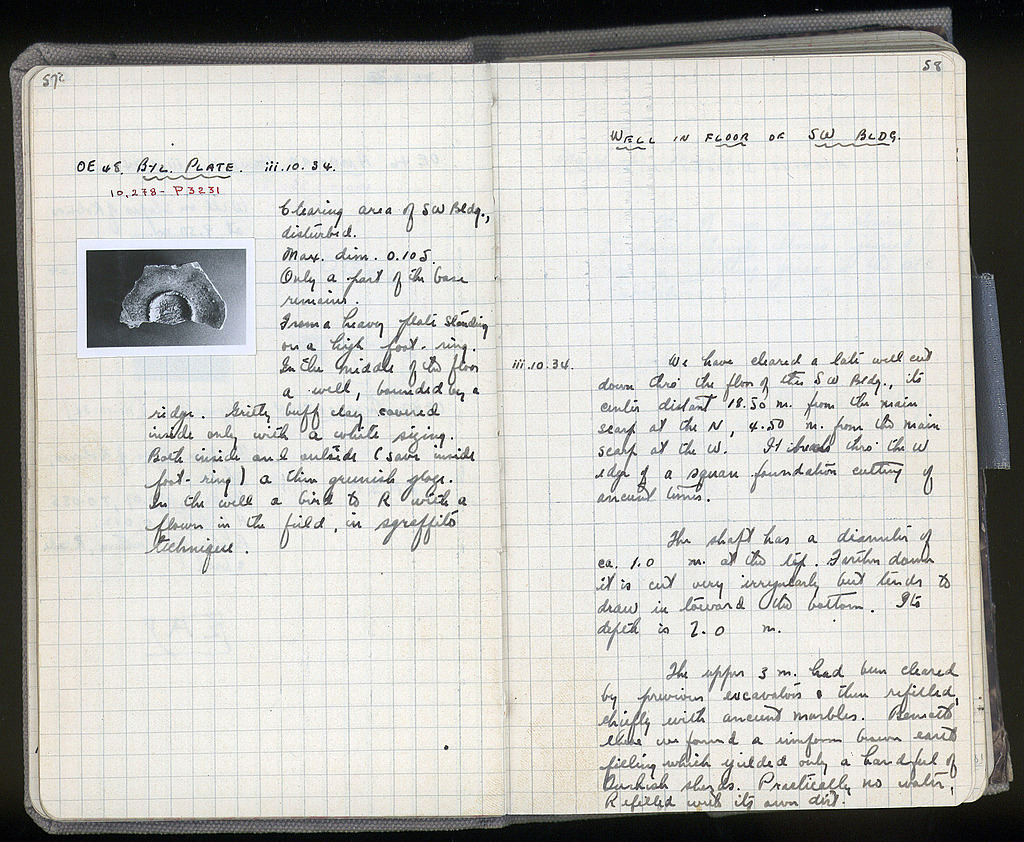 57²
OE 48. BYZ. PLATE. iii.10.34.
10,278 - P 3231
Clearing area of SW Bldg.,
disturbed.
Max. dim. 0.105.
Only a part of the base
remains.
From a heavy plate standing
on a high foot-ring.
In the middle of the floor
a well, bounded by a
ridge. Gritty buff clay covered
inside only with a white sizing.
Both inside and outside (save inside
foot-ring) a thin greenish glaze.
In the well a bird to R with a
flower in the field, in sgraffito
technique.
58
WELL IN FLOOR OF SW BLDG.
iii.10.34. We have cleared a late well cut
down thro' the floor of the SW Bldg., its
center distant 18.50 m. from the main
scarp at the N, 4.50 m. from the main
scarp at the W. It breaks thro' the W
edge of a square foundation cutting of
ancient times.
The shaft has a diameter of
ca. 1.0 m. at the top. Farther down
it is cut very irregularly but tends to
draw in toward the bottom. Its
depth is 7.0 m.
The upper 3 m. had been cleared
by previous excavators & then refilled,
chiefly with ancient marbles. Beneath
these we found a uniform brown earth
filling which yielded only a handful of
Turkish sherds. Practically no water.
Refilled with its own dirt.